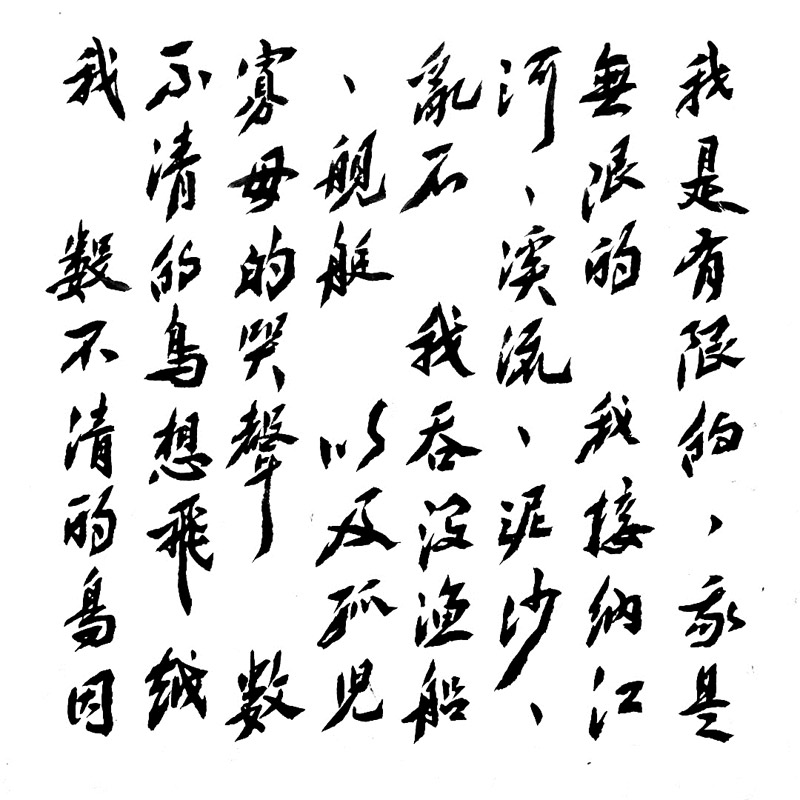 我是有限的、我是
無限的 我接納江
河、溪流、泥沙、
亂石 我吞没漁船
、舰艇 以及孤兒
寡母的哭聲 数
不清的鳥想飛越
我 數不清的鳥因